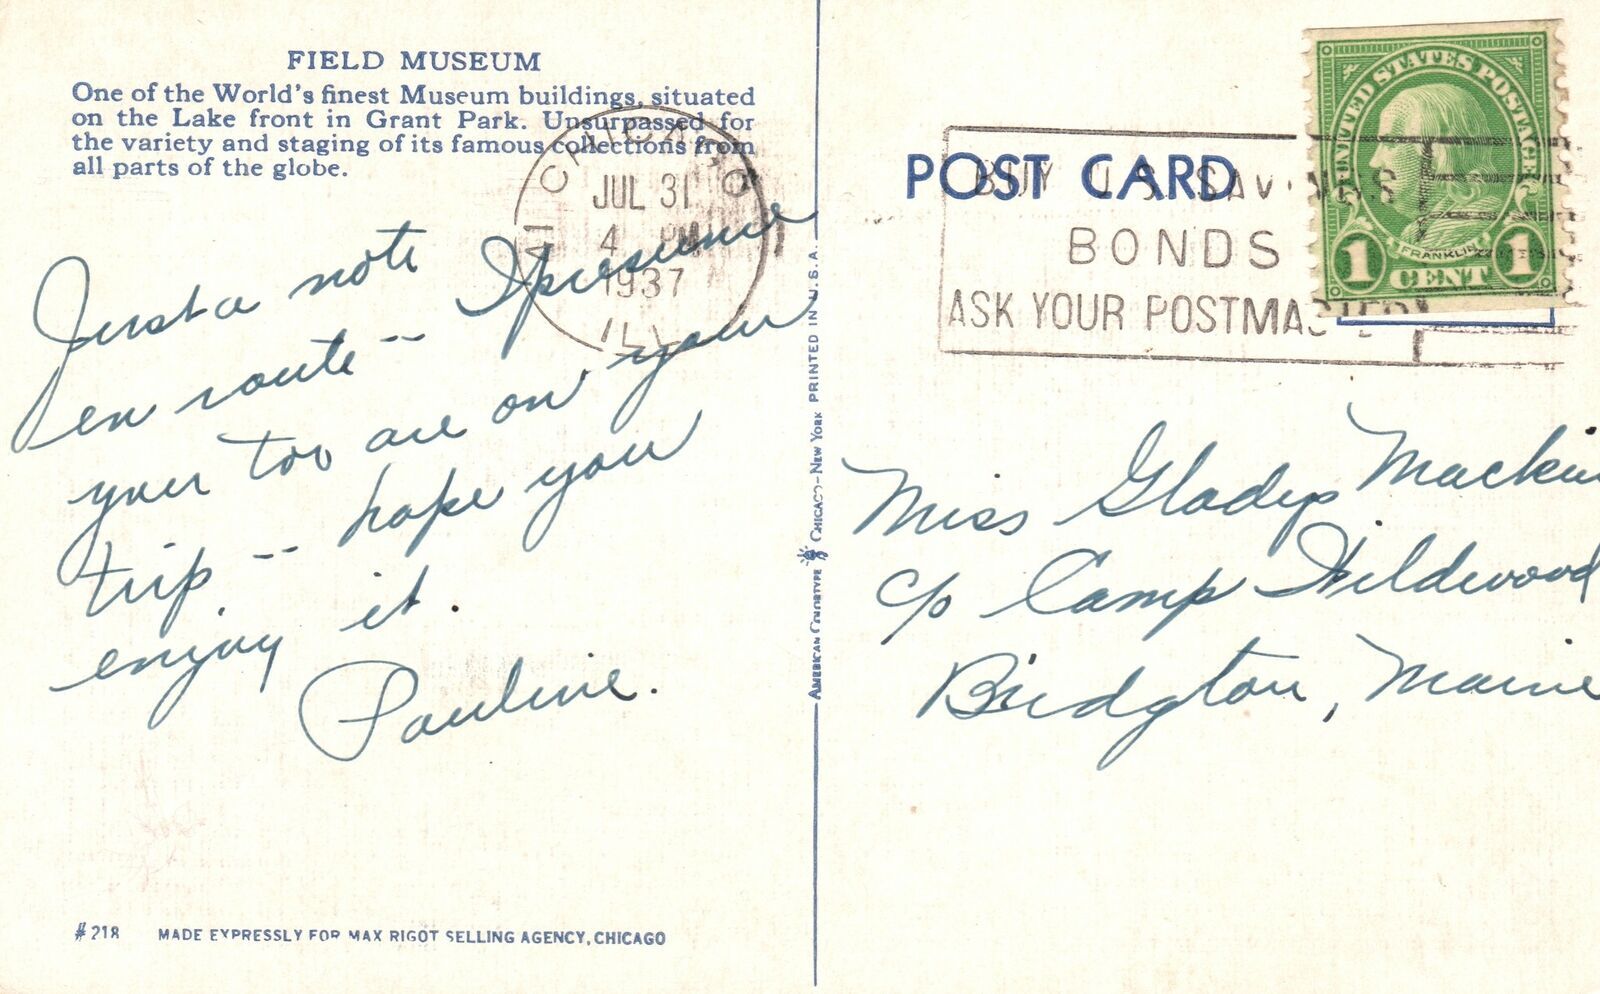 FIELD MUSEUM
One of the World's finest Museum buildings, situated
on the Lake front in Grant Park. Unsurpassed for
the variety and staging of its famous collections from
all parts of the globe.
Just a note
en route -- I presume
your too are on your
trip -- hope you
enjoy it.
Pauline.
#218 MADE EXPRESSLY FOR MAX RIGOT SELLING AGENCY, CHICAGO
CHICAGO
JUL 31
4 PM
1937
ILL.
AMERICAN COLORTYPE CHICAGO-NEW YORK PRINTED IN U.S.A.
POST CARD
BUY U.S. SAVINGS
BONDS
ASK YOUR POSTMASTER
UNITED STATES POSTAGE
FRANKLIN
1 CENT 1
Miss Gladys Mackin
c/o Camp Wildwood
Bridgton, Maine